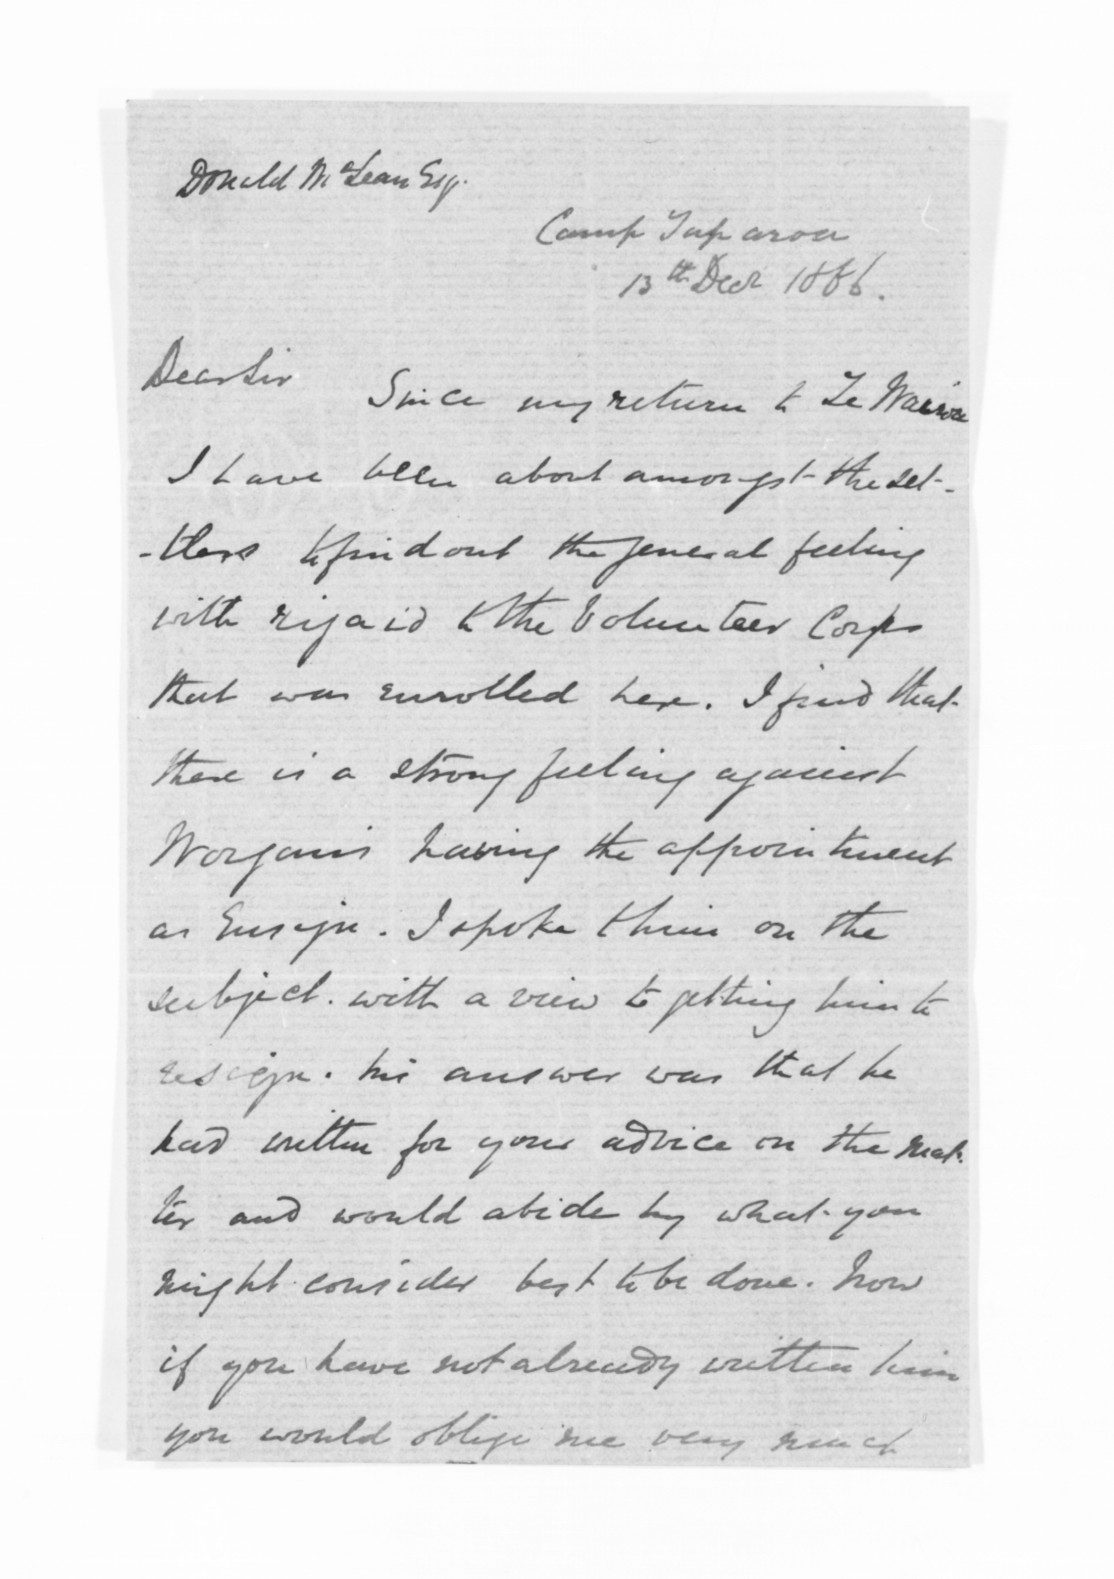 Donald McLean Esq.
Camp Taparoa
13th Decr 1866.
Dear Sir
Since my return to Te Wairoa
I have been about amongst the set-
-tlers to find out the general feeling
with regard to the Volunteer Corps
that was enrolled here. I find that
there is a strong feeling against
Worgan's having the appointment
as Ensign. I spoke t him on the
subject. with a view to getting him to
resign. his answer was that he
had written for your advice on the mat-
ter and would abide by what you
might consider best to be done. Now
if you have not already written him
you would oblige me very much